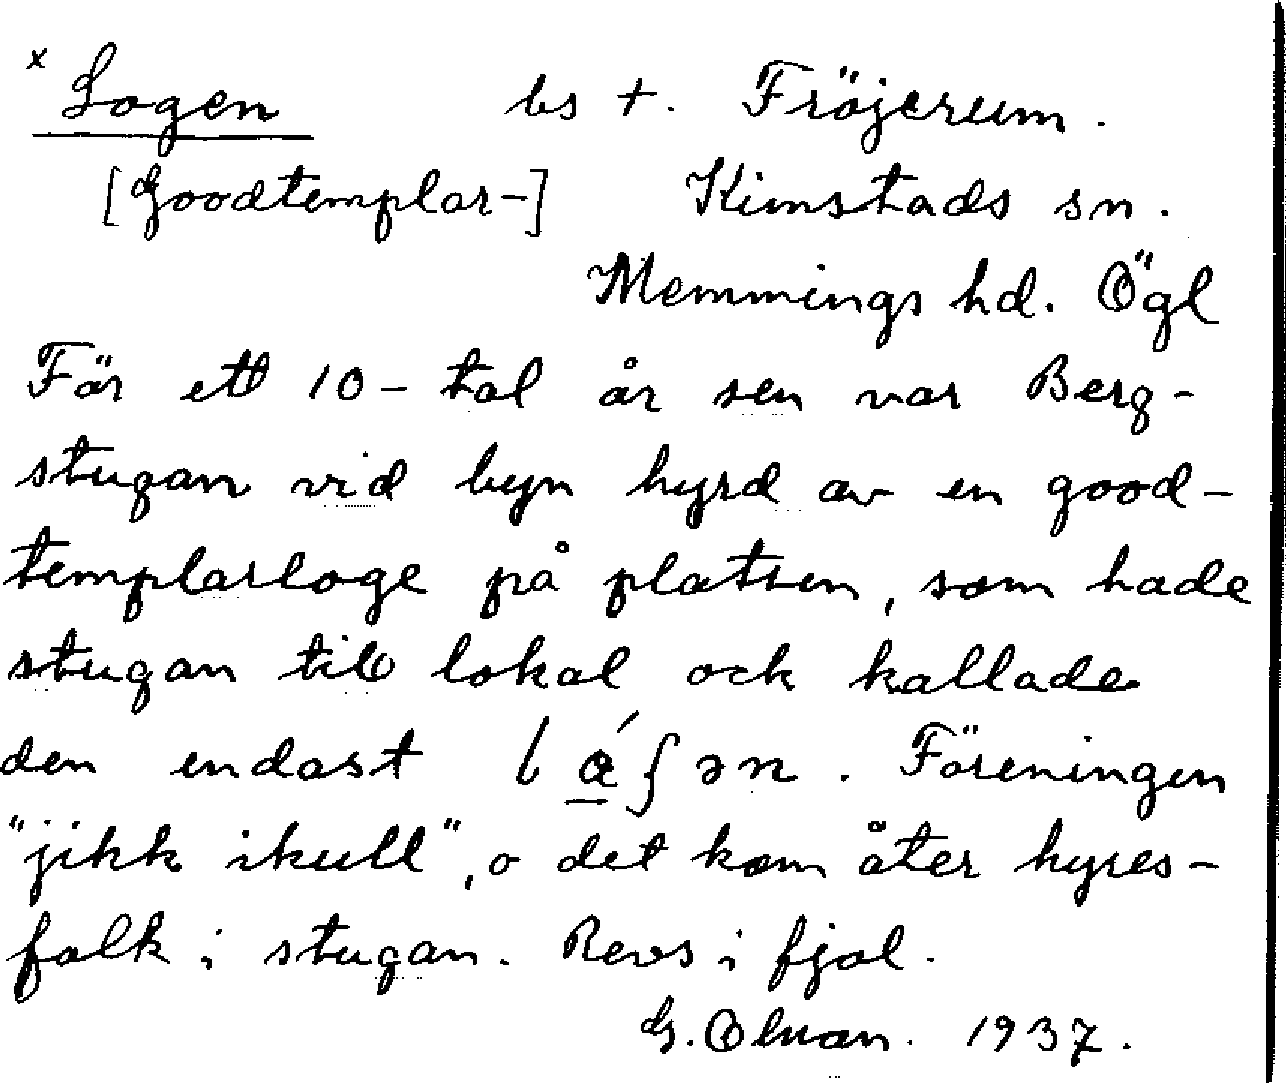 x Logen bs †. Fröjerum.
[Goodtemplar-] Kimstads sn.
Memmings hd. Ögl
För ett 10-tal år sen var Berg-
stugan vid byn hyrd av en good-
templarloge på platsen, som hade
stugan till lokal ock kallade
den endast lǻʃən. Föreningen
"jikk ikull", o det kom åter hyres-
folk i stugan. Revs i fjol.
G. 1937.